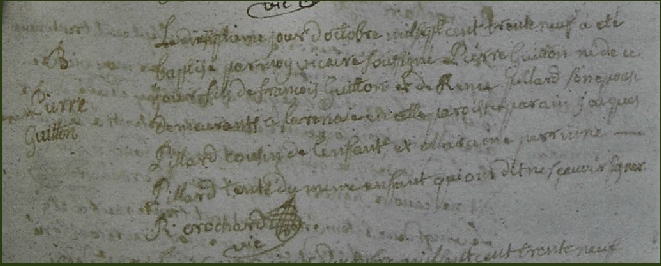 vic
B
Pierre
Guitton
Le dixseptieme jour d'octobre mil sept cent trente neuf a eté
baptisé par moy vicaire soussigné Pierre Guitton né de ce
jour fils de francois Guitton et de Renée Pillard son epouse
demeurants a en cette paroisse parain jacques
Pillard cousin de l'enfant et maraine perrinne
Pillard tente du meme enfant qui ont dit ne scavoir signer
R. crochard
vic
mil sept cent trente neuf